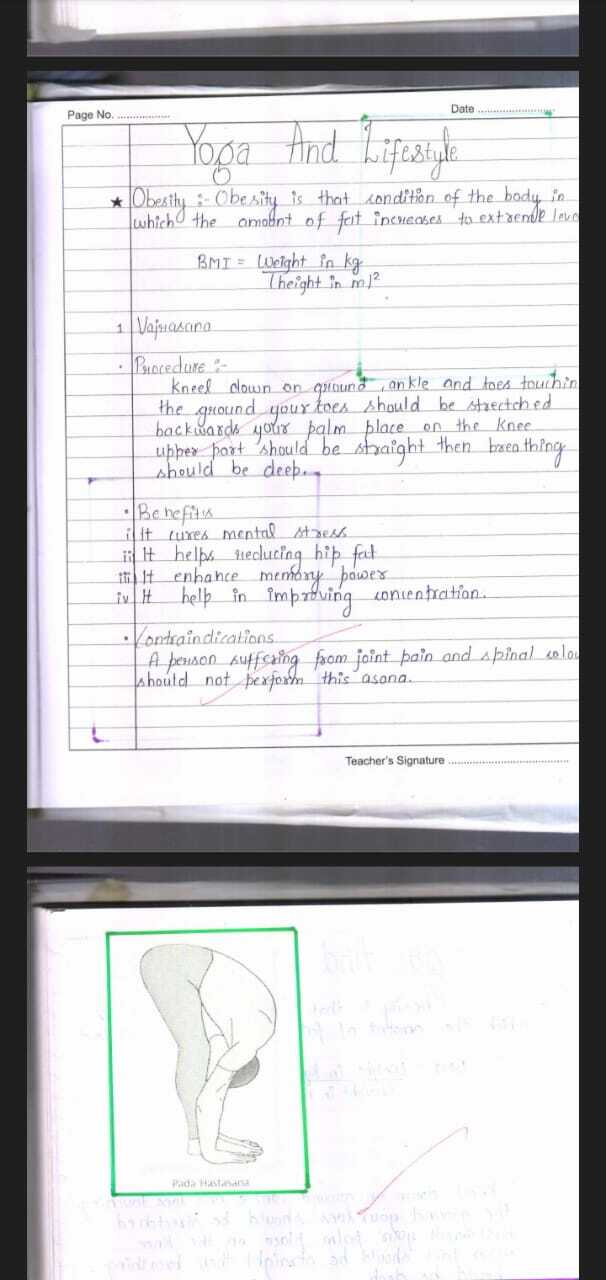 Page No. ..................
Date ..........................
Yoga And Lifestyle
★ Obesity :- Obesity is that condition of the body in
which the amount of fat increases to extreme leve
BMI = Weight in kg
(height in m)²
1 Vajrasana
• Procedure :-
Kneel down on ground, ankle and toes touchin
the ground your toes should be strectched
backwards your palm place on the knee
upper part should be straight then breathing
should be deep.
• Benefits
i It cures mental stress
ii It helps reducing hip fat
iii It enhance memory power
iv It help in improving concentration.
• Contraindications
A person suffering from joint pain and spinal colou
should not perform this asana.
Teacher's Signature ......................................
Pada Hastasana